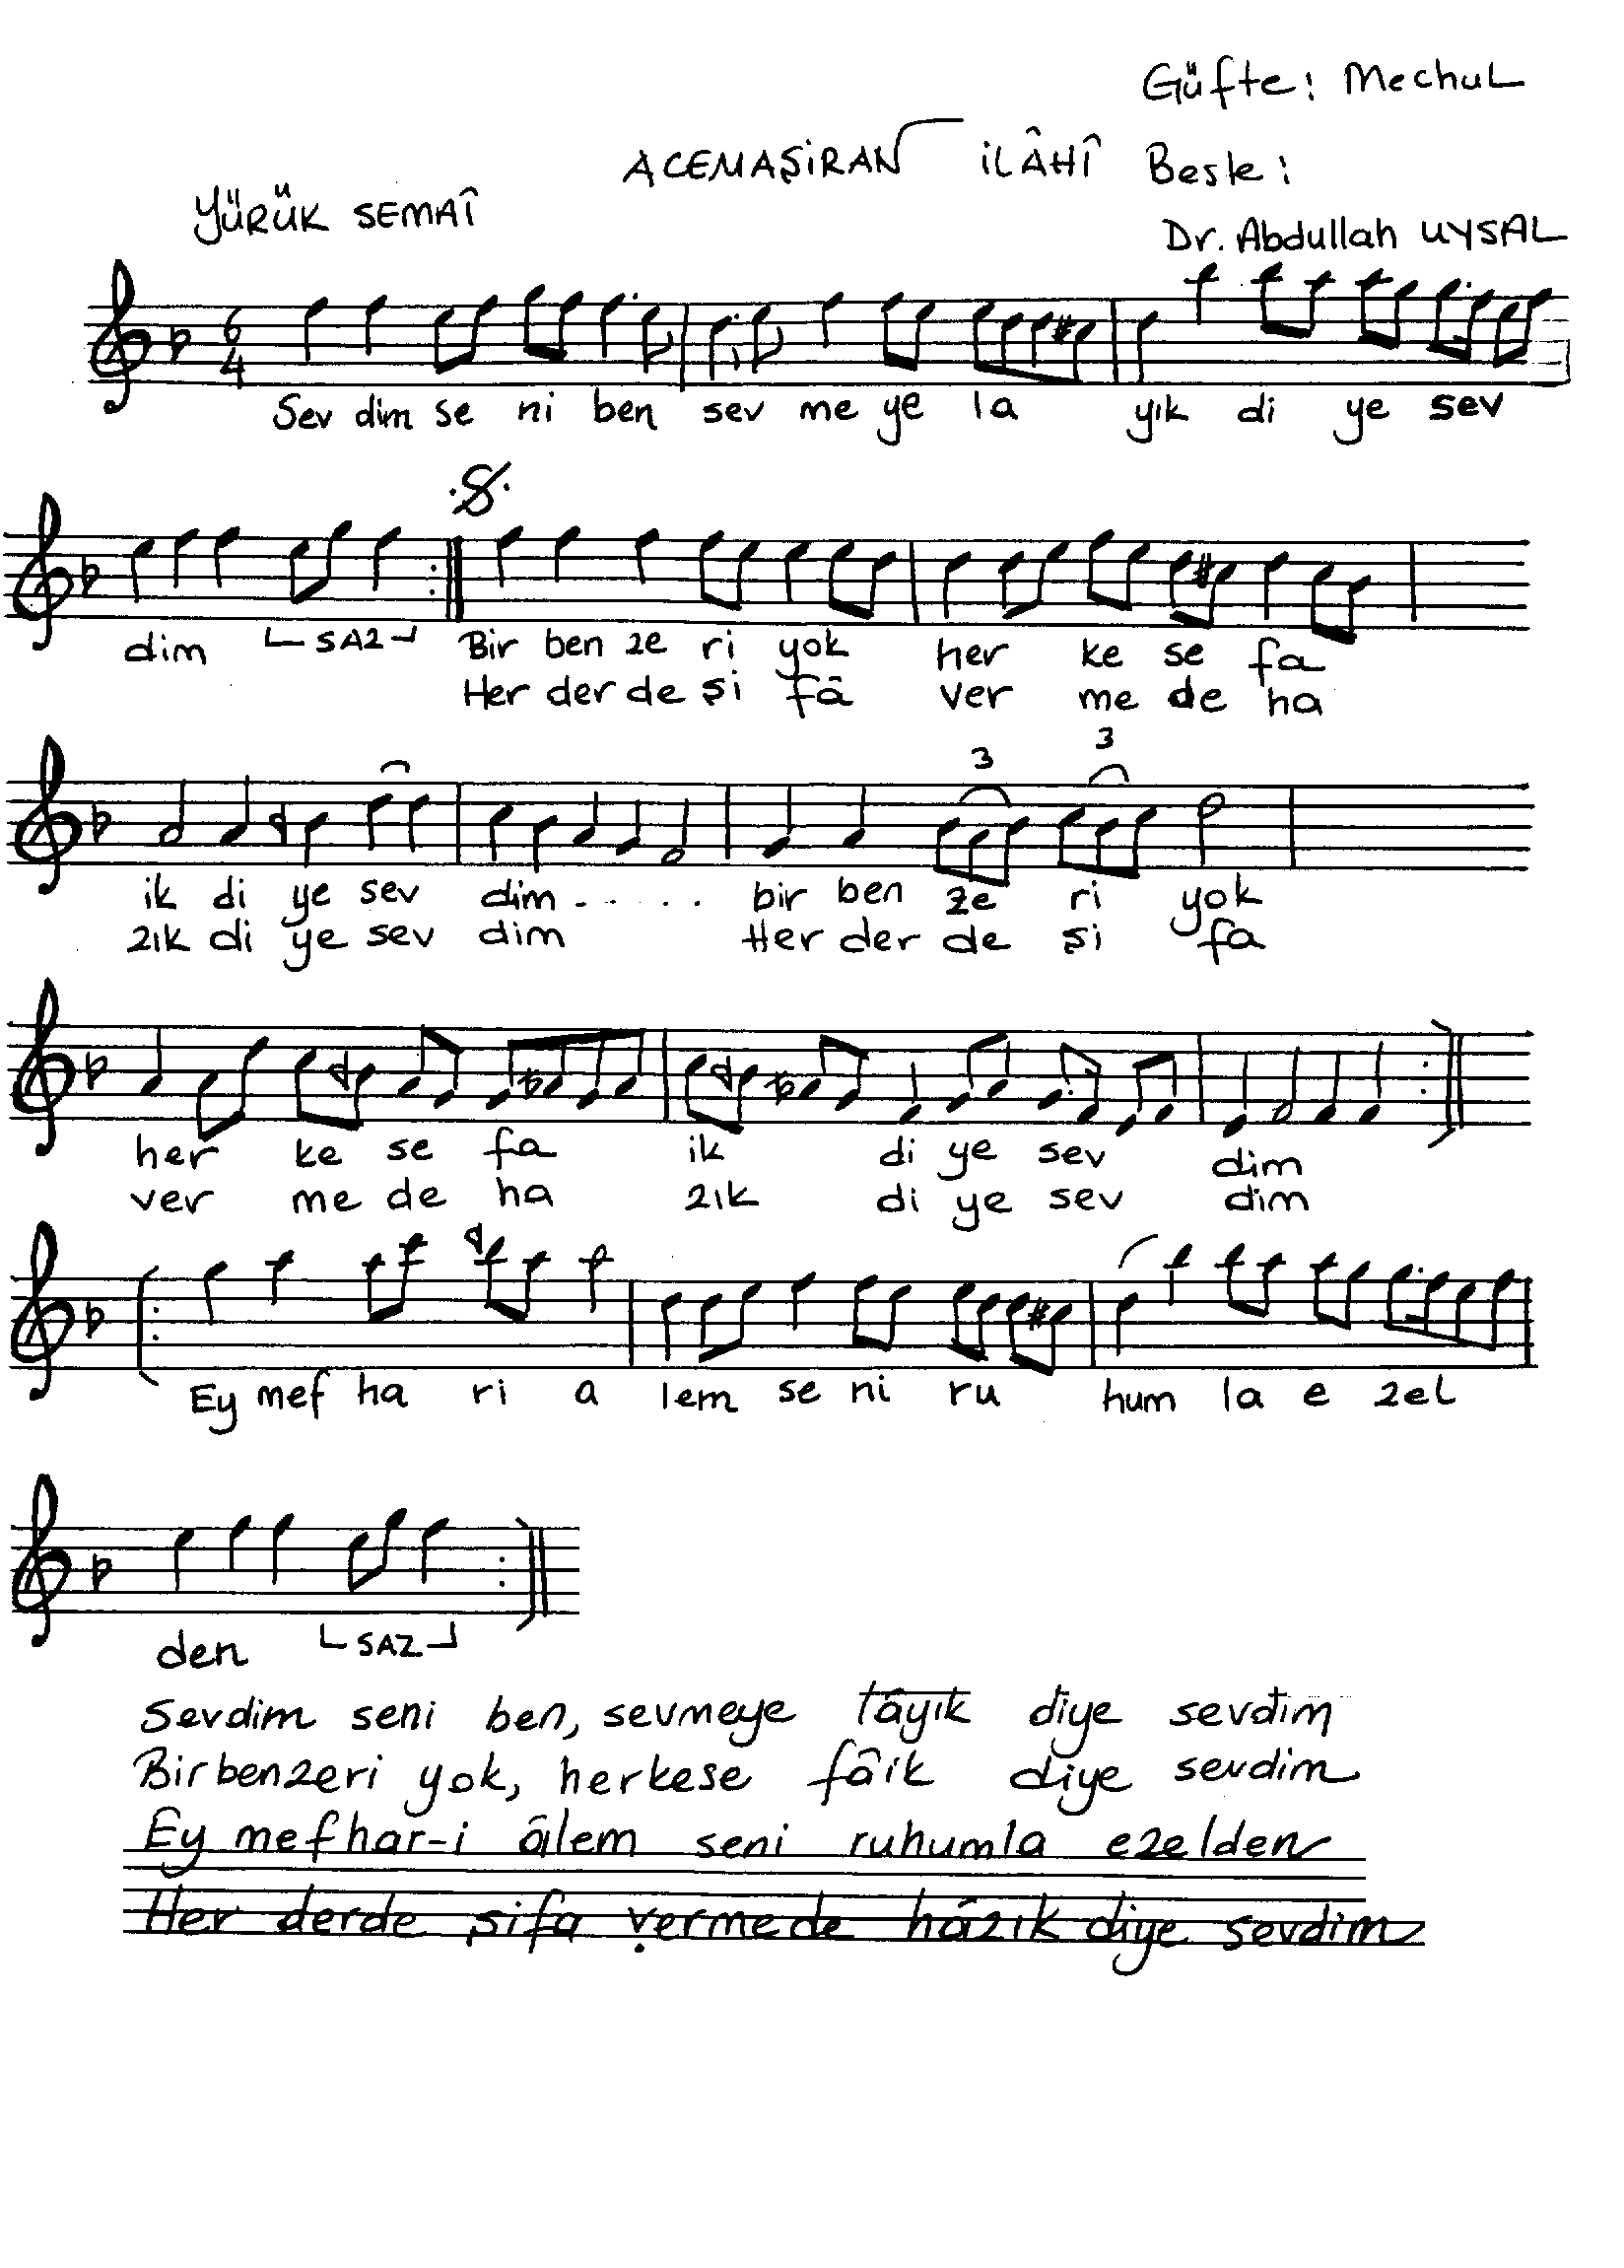 Güfte: Mechul
ACEMAŞİRAN İLÂHÎ Beste:
YÜRÜK SEMAÎ
Dr. Abdullah UYSAL
6
4
Sev dim se ni ben sev me ye la yık di ye sev
dim SAZ Bir ben ze ri yok her ke se fa
Her der de şi fâ ver me de ha
3 3
ik di ye sev dim . . . . . bir ben ze ri yok
zık di ye sev dim Her der de şi fa
her ke se fa ik di ye sev dim
ver me de ha zık di ye sev dim
Ey mef ha ri a lem se ni ru hum la e zel
den SAZ
Sevdim seni ben, sevmeye lâyık diye sevdim
Bir benzeri yok, herkese fâik diye sevdim
Ey mefhar-i âlem seni ruhumla ezelden
Her derde şifa vermede hâzık diye sevdim